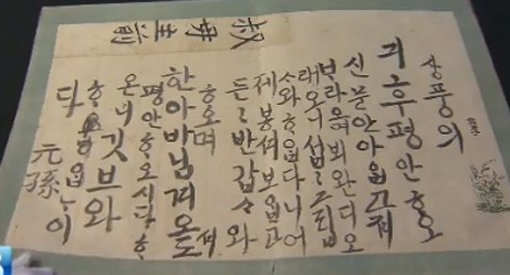 叔母主前
상풍의
긔후평안ᄒᆞ오
신 문안 아ᄋᆞᆸ고져
ᄇᆞ라오며 뵈완디 오
래오니 섭〻 그립
ᄉᆞ와 ᄒᆞᄋᆞᆸ다니 어
제 봉셔 보ᄋᆞᆸ고
든〻 반갑ᄉᆞ와
ᄒᆞ오며
한아바님 겨오셔
평안ᄒᆞ오시다 ᄒᆞ
온니 깃브와
ᄒᆞᄋᆞᆸᄂᆞ이
다 元孫